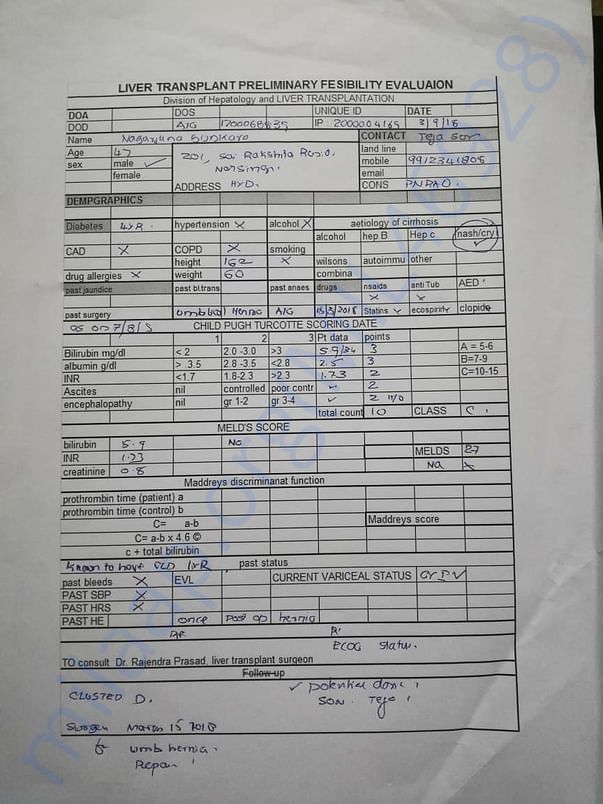 LIVER TRANSPLANT PRELIMINARY FESIBILITY EVALUAION
Division of Hepatology and LIVER TRANSPLANTATION
DOA DOS UNIQUE ID DATE
DOD AIG 1700068839 IP 2000004169 3/9/18
Name Nagarjuna CONTACT Teja Son
Age 47 land line
sex male ✓ 201, Sai Rakshita Resd. mobile 9912341808
female Narsingi email
ADDRESS HYD. CONS PNRAO.
DEMPGRAPHICS
Diabetes 4yR. hypertension X alcohol X aetiology of cirrhosis
alcohol hep B Hep c nash/cry ✓
CAD X COPD X smoking
height 162 X wilsons autoimmu other
drug allergies X weight 60 combina
past jaundice past bl.trans past anaes drugs nsaids anti Tub AED'
X X
past surgery umbilical Hernia AIG 15/3/2018 Statins ecospirin clopide
as on 7/8/ CHILD PUGH TURCOTTE SCORING DATE
1 2 3 Pt data points
Bilirubin mg/dl < 2 2.0 -3.0 >3 5.9/ 3 A = 5-6
albumin g/dl > 3.5 2.8 -3.5 <2.8 2.5 3 B=7-9
INR <1.7 1.8-2.3 >2.3 1.73 2 C=10-15
Ascites nil controlled poor contr ✓ 2
encephalopathy nil gr 1-2 gr 3-4 ✓ 2 H/O
total count 10 CLASS C
MELD'S SCORE
bilirubin 5.9 No
INR 1.73 MELDS 27
creatinine 0.8 Na X
Maddreys discriminanat function
prothrombin time (patient) a
prothrombin time (control) b
C= a-b Maddreys score
C= a-b x 4.6 ©
c + total bilirubin
Known to have CLD 1yR past status
past bleeds X EVL CURRENT VARICEAL STATUS
PAST SBP X
PAST HRS X
PAST HE once Post op hernia
ECOG Status.
TO consult Dr. Rajendra Prasad, liver transplant surgeon
Follow-up
✓ potential donor
CLOSTED D. SON. Teja
March 15 2018
umb hernia.
Repair
milaap.org